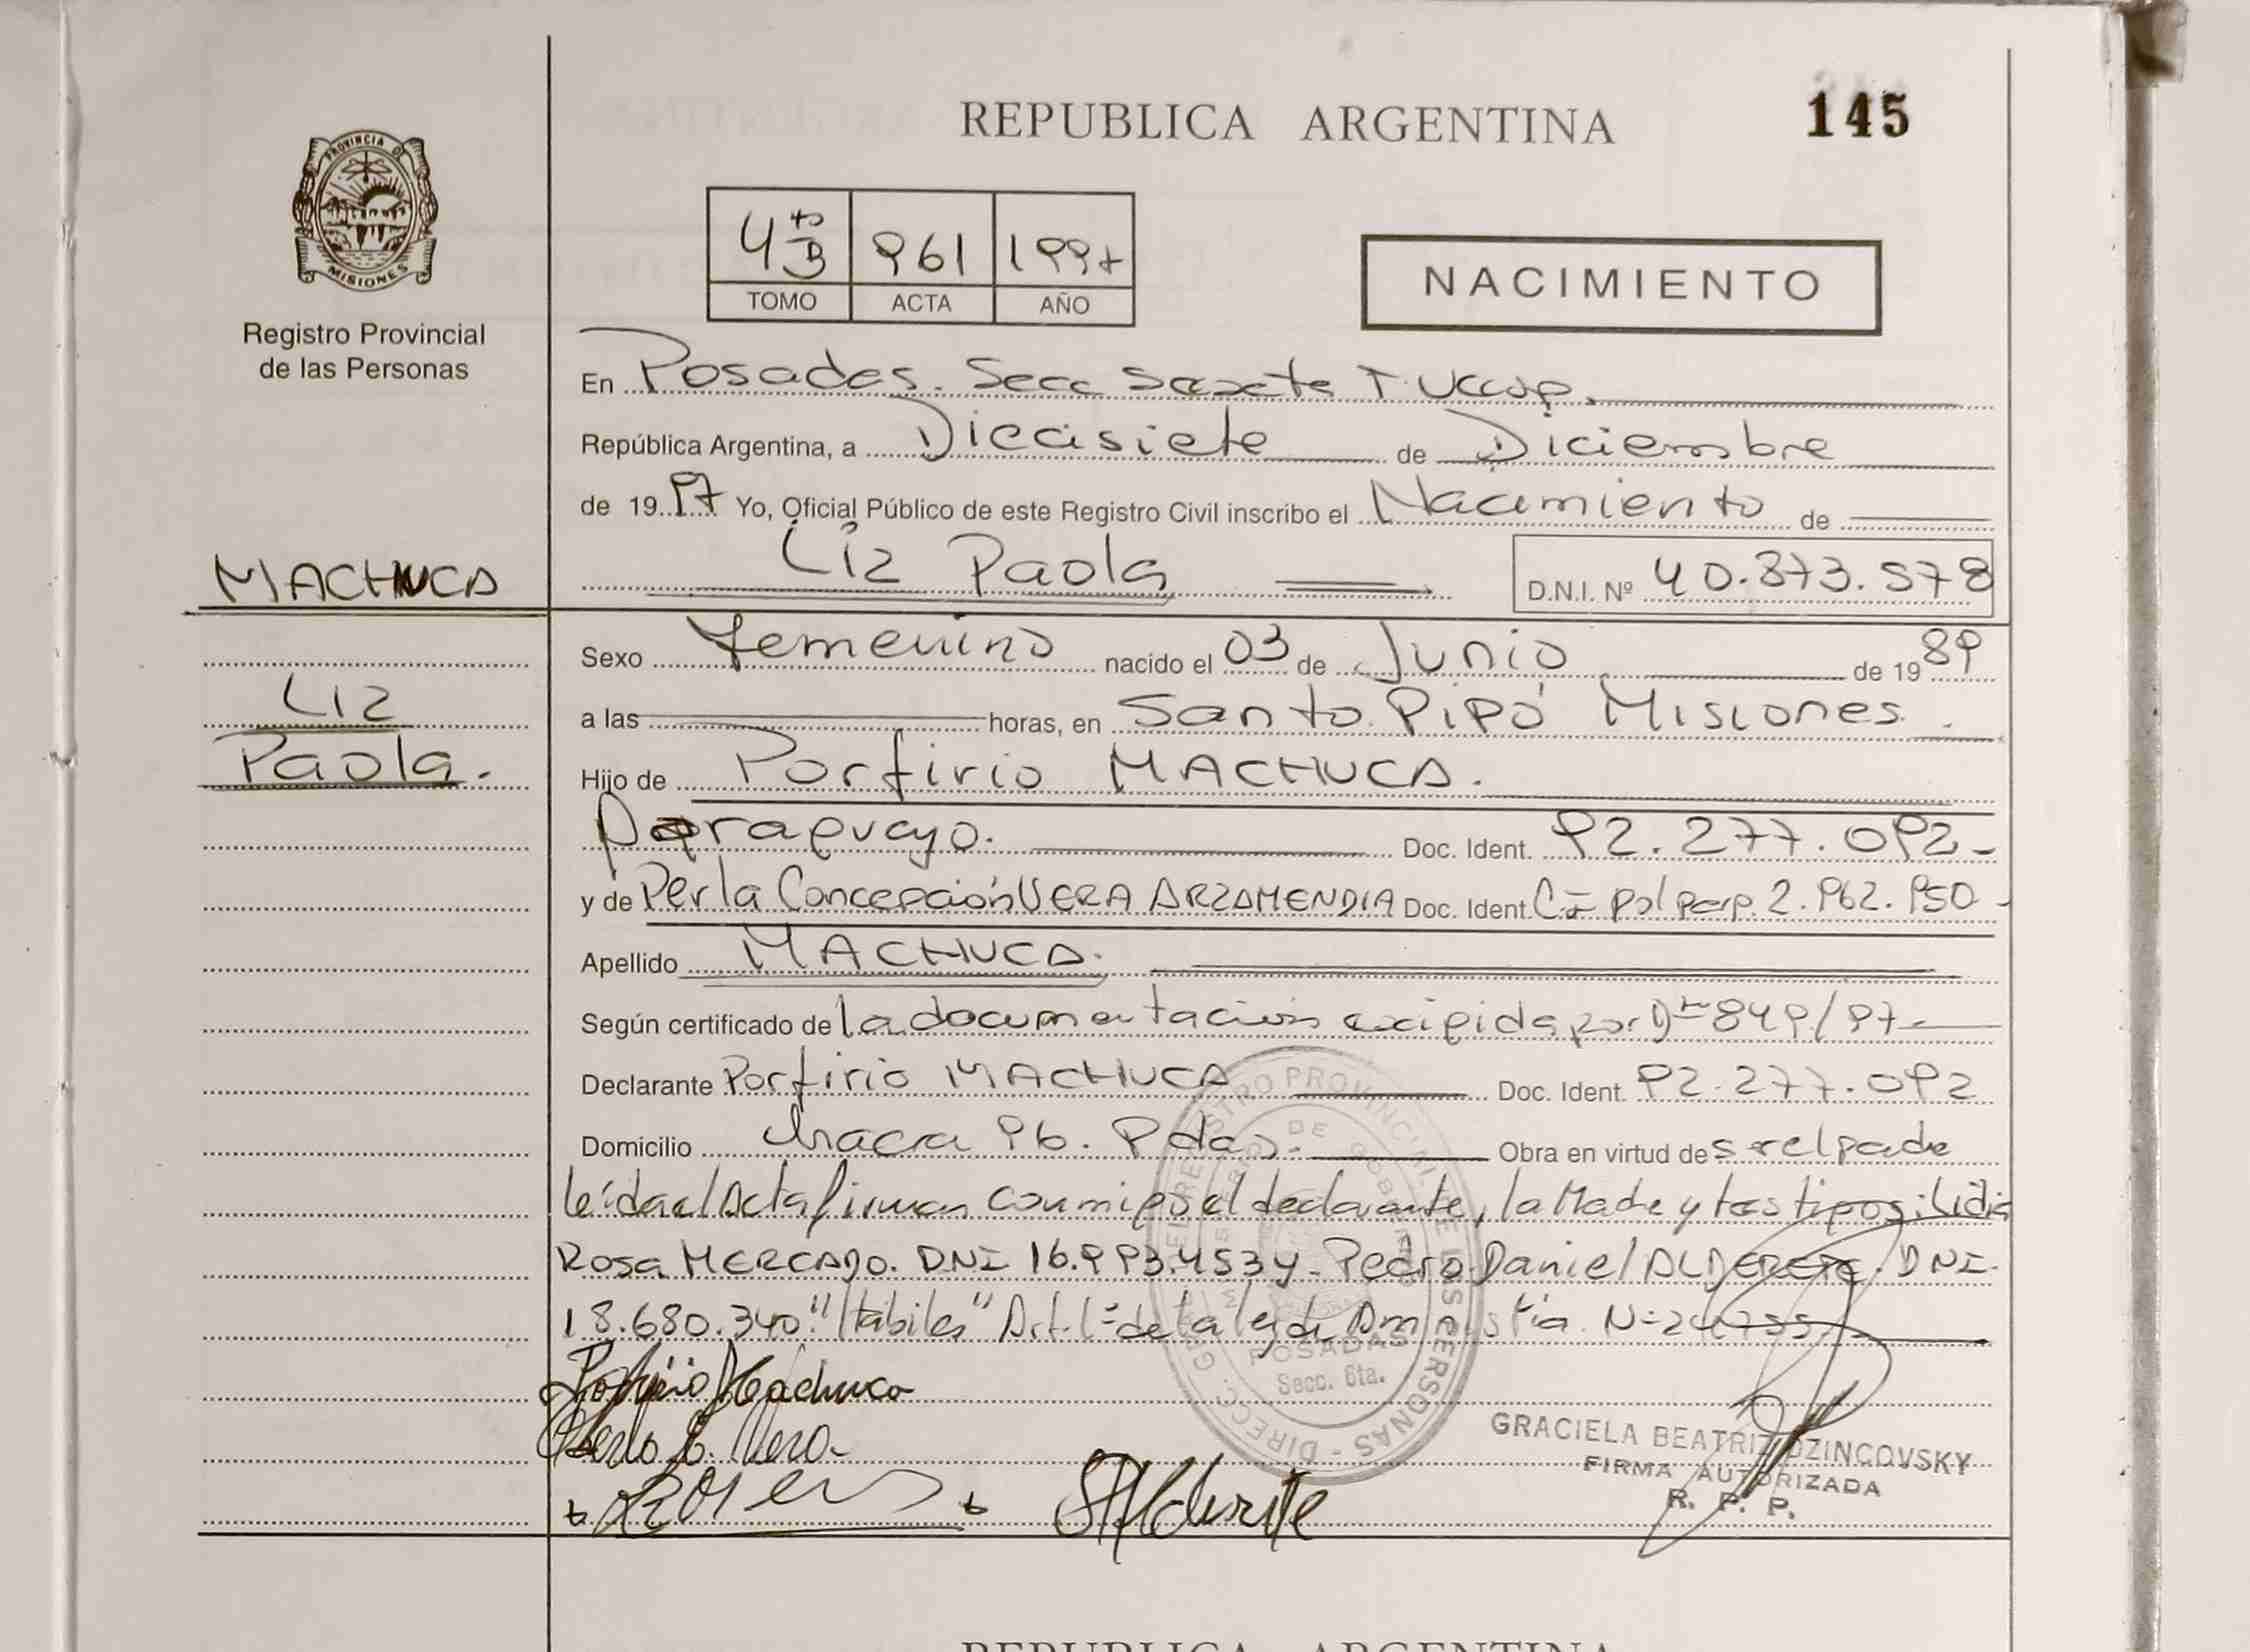 REPUBLICA ARGENTINA
145
PROVINCIA DE
MISIONES
Registro Provincial
de las Personas
4to B 961 1997
TOMO ACTA AÑO
NACIMIENTO
En Posadas. Secc Sexta
República Argentina, a Diecisiete de Diciembre
de 1997 Yo, Oficial Público de este Registro Civil inscribo el Nacimiento de
MACHUCA
Liz Paola
D.N.I. Nº 40.873.578
Sexo Femenino nacido el 03 de Junio de 1989
Liz
a las horas, en Santo Pipó Misiones
Paola.
Hijo de Porfirio MACHUCA.
Paraguayo. Doc. Ident. 92.277.092
y de Perla Concepción VERA ARZAMENDIA Doc. Ident. 2.962.950
Apellido MACHUCA.
Según certificado de la documentación exigida por D 849/97
Declarante Porfirio MACHUCA Doc. Ident. 92.277.092
Domicilio Chacra 96. Pdas. Obra en virtud de
leída el Acta firman conmigo el declarante, la Madre y tgos Lidia
Rosa MERCADO. DNI 16.993.453 y Pedro Daniel ALDERETE DNI.
18.680.340 "Hábiles" Art. 1º de la ley de Amnistía Nº
Porfirio Machuca
Perla C. Vera
DIRECC. GRAL. DEL REGISTRO PROVINCIAL DE LAS PERSONAS
POSADAS
Secc. 6ta.
GRACIELA BEATRIZ DZINCOVSKY
FIRMA AUTORIZADA
R. P. P.
REPUBLICA ARGENTINA